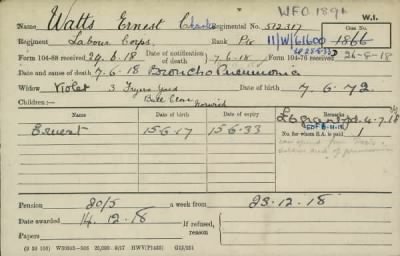 WFO 1891
W.I.
Watts Ernest Charles Regimental No. 572317
Regiment Labour Corps. Rank Pte 11/W/61600 1866
Form 104-88 received 24.6.18 Date of notification of death 7.6.18 Form 104-76 received 26-8-18
Date and cause of death 7.6.18 Broncho Pneumonia
Widow Violet 3 Fryers Yard Date of birth 7.6.72
Bull Close Norwich
Children:—
Date of birth Date of expiry
Ernest 15·6·17 15·6·33
4.7.18
No. for whom S.A. is paid 1
Pension 20/5 a week from 23.12.18
Date awarded 14.12.18 If refused, reason
Papers